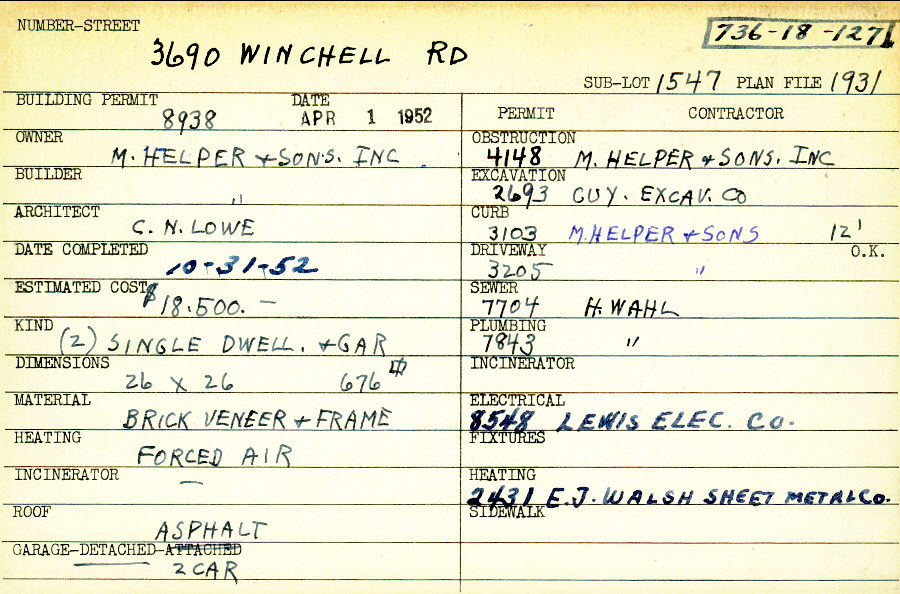 NUMBER-STREET
3690 WINCHELL RD
736-18-127
SUB-LOT 1547 PLAN FILE 1931
BUILDING PERMIT DATE
8938 APR 1 1952
OWNER
M. HELPER + SONS. INC
BUILDER
"
ARCHITECT
C. N. LOWE
DATE COMPLETED
10-31-52
ESTIMATED COST
$18.500. —
KIND
(2) SINGLE DWELL. + GAR
DIMENSIONS
26 X 26 676
MATERIAL
BRICK VENEER + FRAME
HEATING
FORCED AIR
INCINERATOR
—
ROOF
ASPHALT
GARAGE-DETACHED-ATTACHED
2 CAR
PERMIT CONTRACTOR
OBSTRUCTION
4148 M. HELPER + SONS. INC
EXCAVATION
2693 GUY. EXCAV. CO
CURB
3103 M. HELPER + SONS 12'
DRIVEWAY O.K.
3205 "
SEWER
7704 H. WAHL
PLUMBING
7843 "
INCINERATOR
ELECTRICAL
8548 LEWIS ELEC. CO.
FIXTURES
HEATING
2431 E.J. WALSH SHEET METAL CO.
SIDEWALK